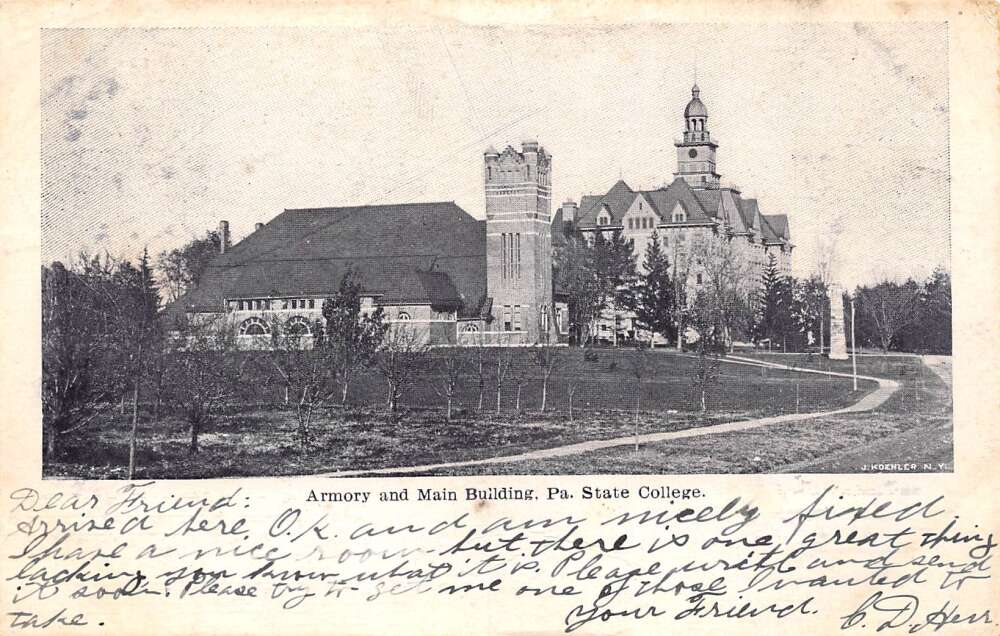 J. KOEHLER N.Y.
ARMORY AND MAIN BUILDING, PA. STATE COLLEGE.
Dear Friend:
Arrived here O.K. and am nicely fixed
I have a nice room but there is one great thing
lacking you know what it is. Please write and send
it soon. Please try to get me one of those I wanted to
take. Your Friend. C. D. Herr.